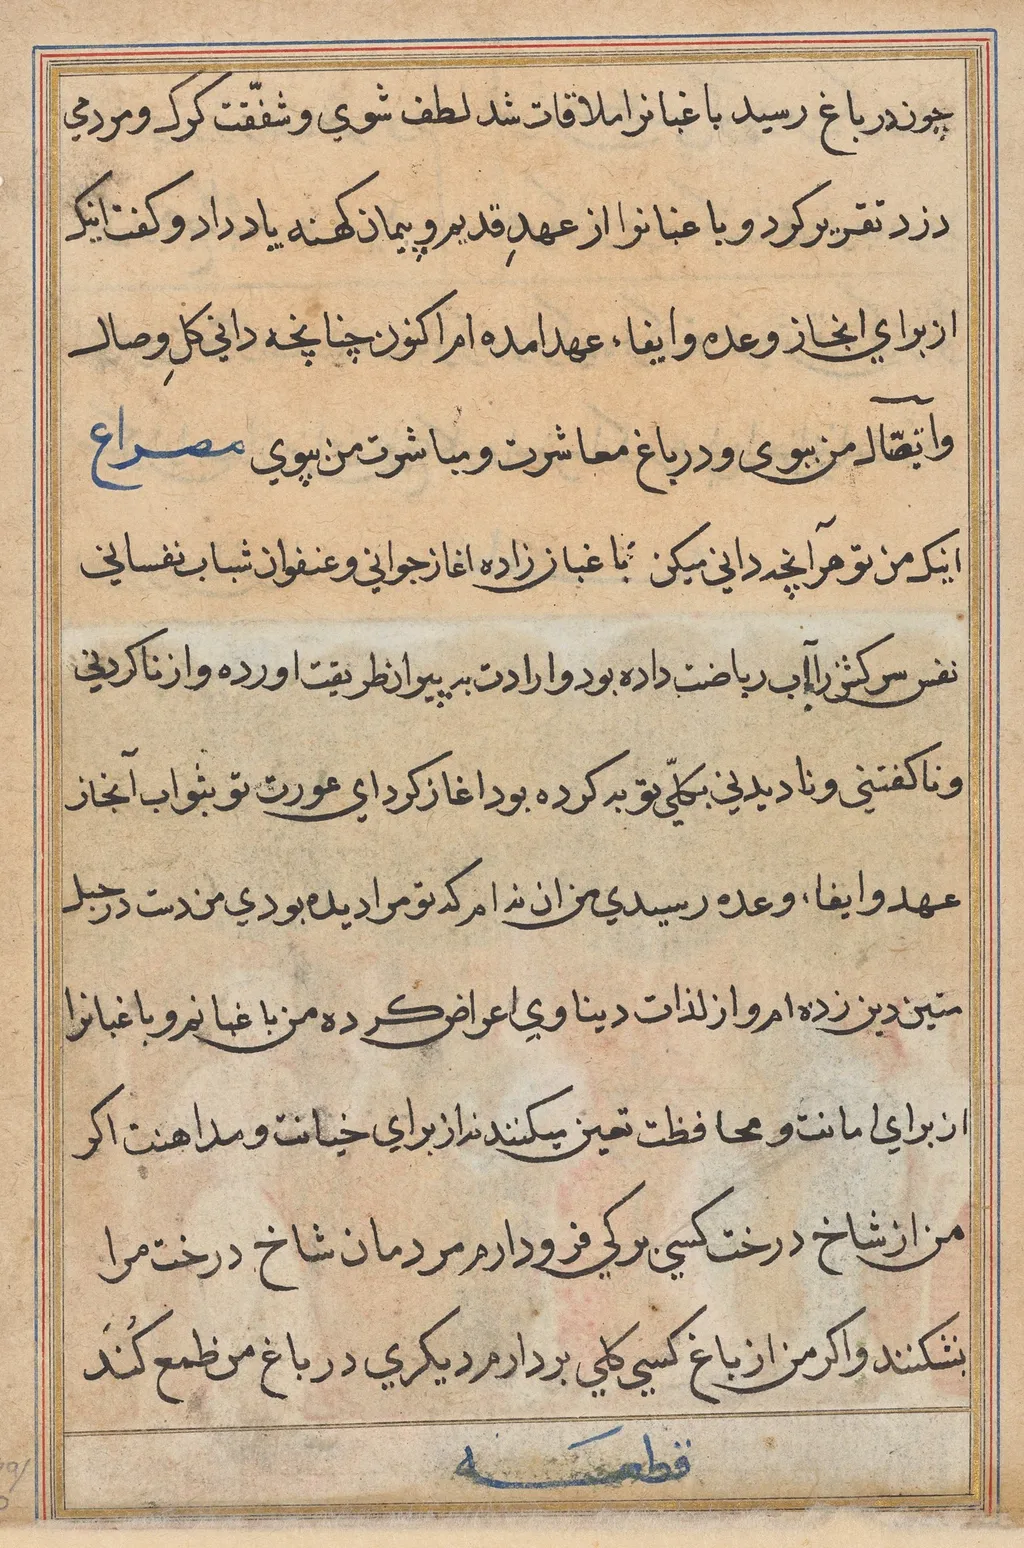 چون در باغ رسید باغبانرا ملاقات شد لطف شوي و شفّقت كرك و مردمي
دزد تقریر كرد و باغبانرا از عهدِ قدیم و پیمان كهنه یاد داد و كفت اینك
از براي انجاز وعده و ایفاء عهد امده ام اكنون چنانچه داني كلِ وصال
و اتّصال من ببوی و در باغ معاشرت و مباشرت من بپوي مصراع
اینك من تو هر آنچه داني میكن باغبان زاده اغاز جواني و عنفوان شباب نفساني
نفس سركش را آب ریاضت داده بود و ارادت به پیران طریقت اورده و از ناكردني
و ناكفتني و نادیدني بكلّي توبه كرده بود اغاز كرد اي عورت تو بثواب آنجاز
عهد و ایفاء وعده رسیدي من ان نه ام كه تو مرا دیده بودي من دست در حبل
متین دین زده ام و از لذات دیناوي اعراض كرده من باغبانم و باغبانرا
از براي امانت و محافظت تعین میكنند نه از براي خیانت و مداهنت اكر
من از شاخ درخت كسي بركي فرود ارم مردمان شاخ درخت مرا
بشكنند و اكر من از باغ كسي كلي بردارم دیكري در باغ من طمع كُنَد
قطعه